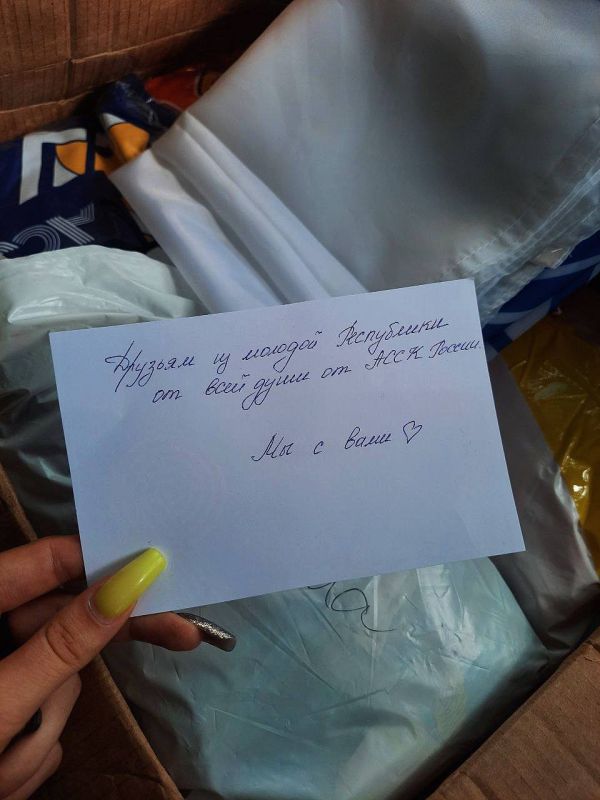 Друзьям из молодой Республики
от всей души от АССК России.
Мы с вами ♡